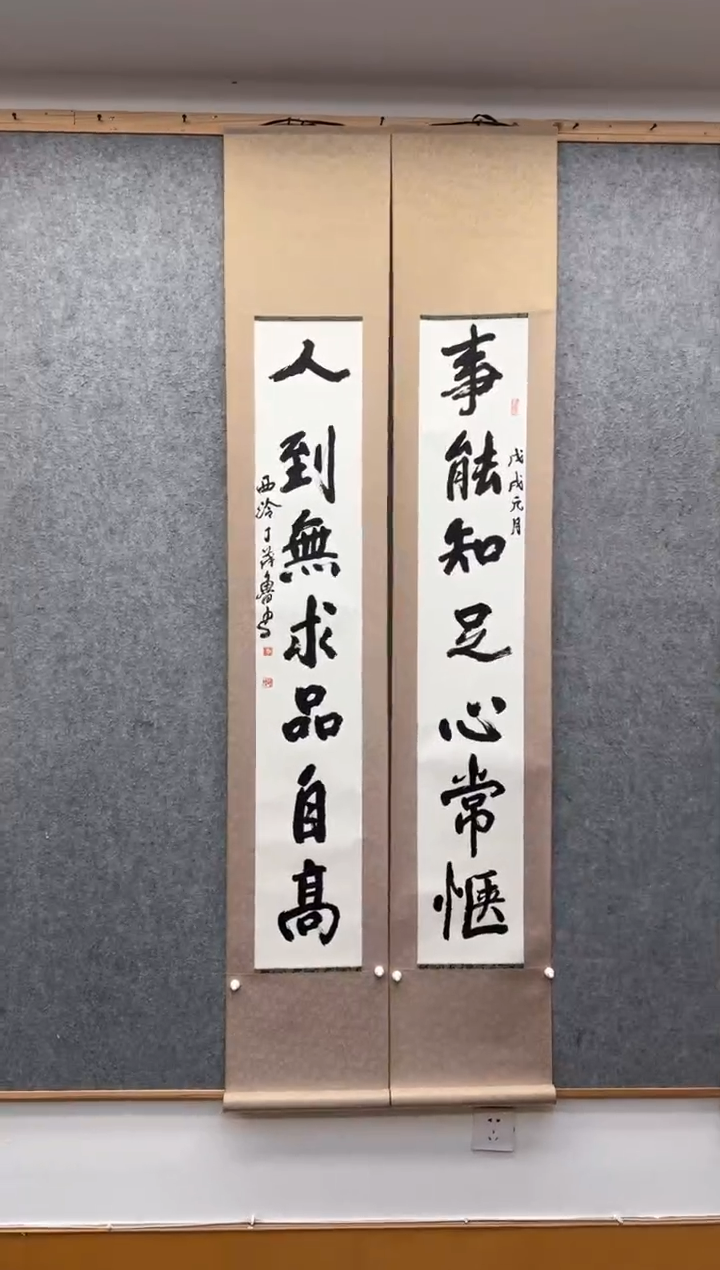 事能知足心常惬
戊戌元月
人到無求品自高
西泠丁茂魯書